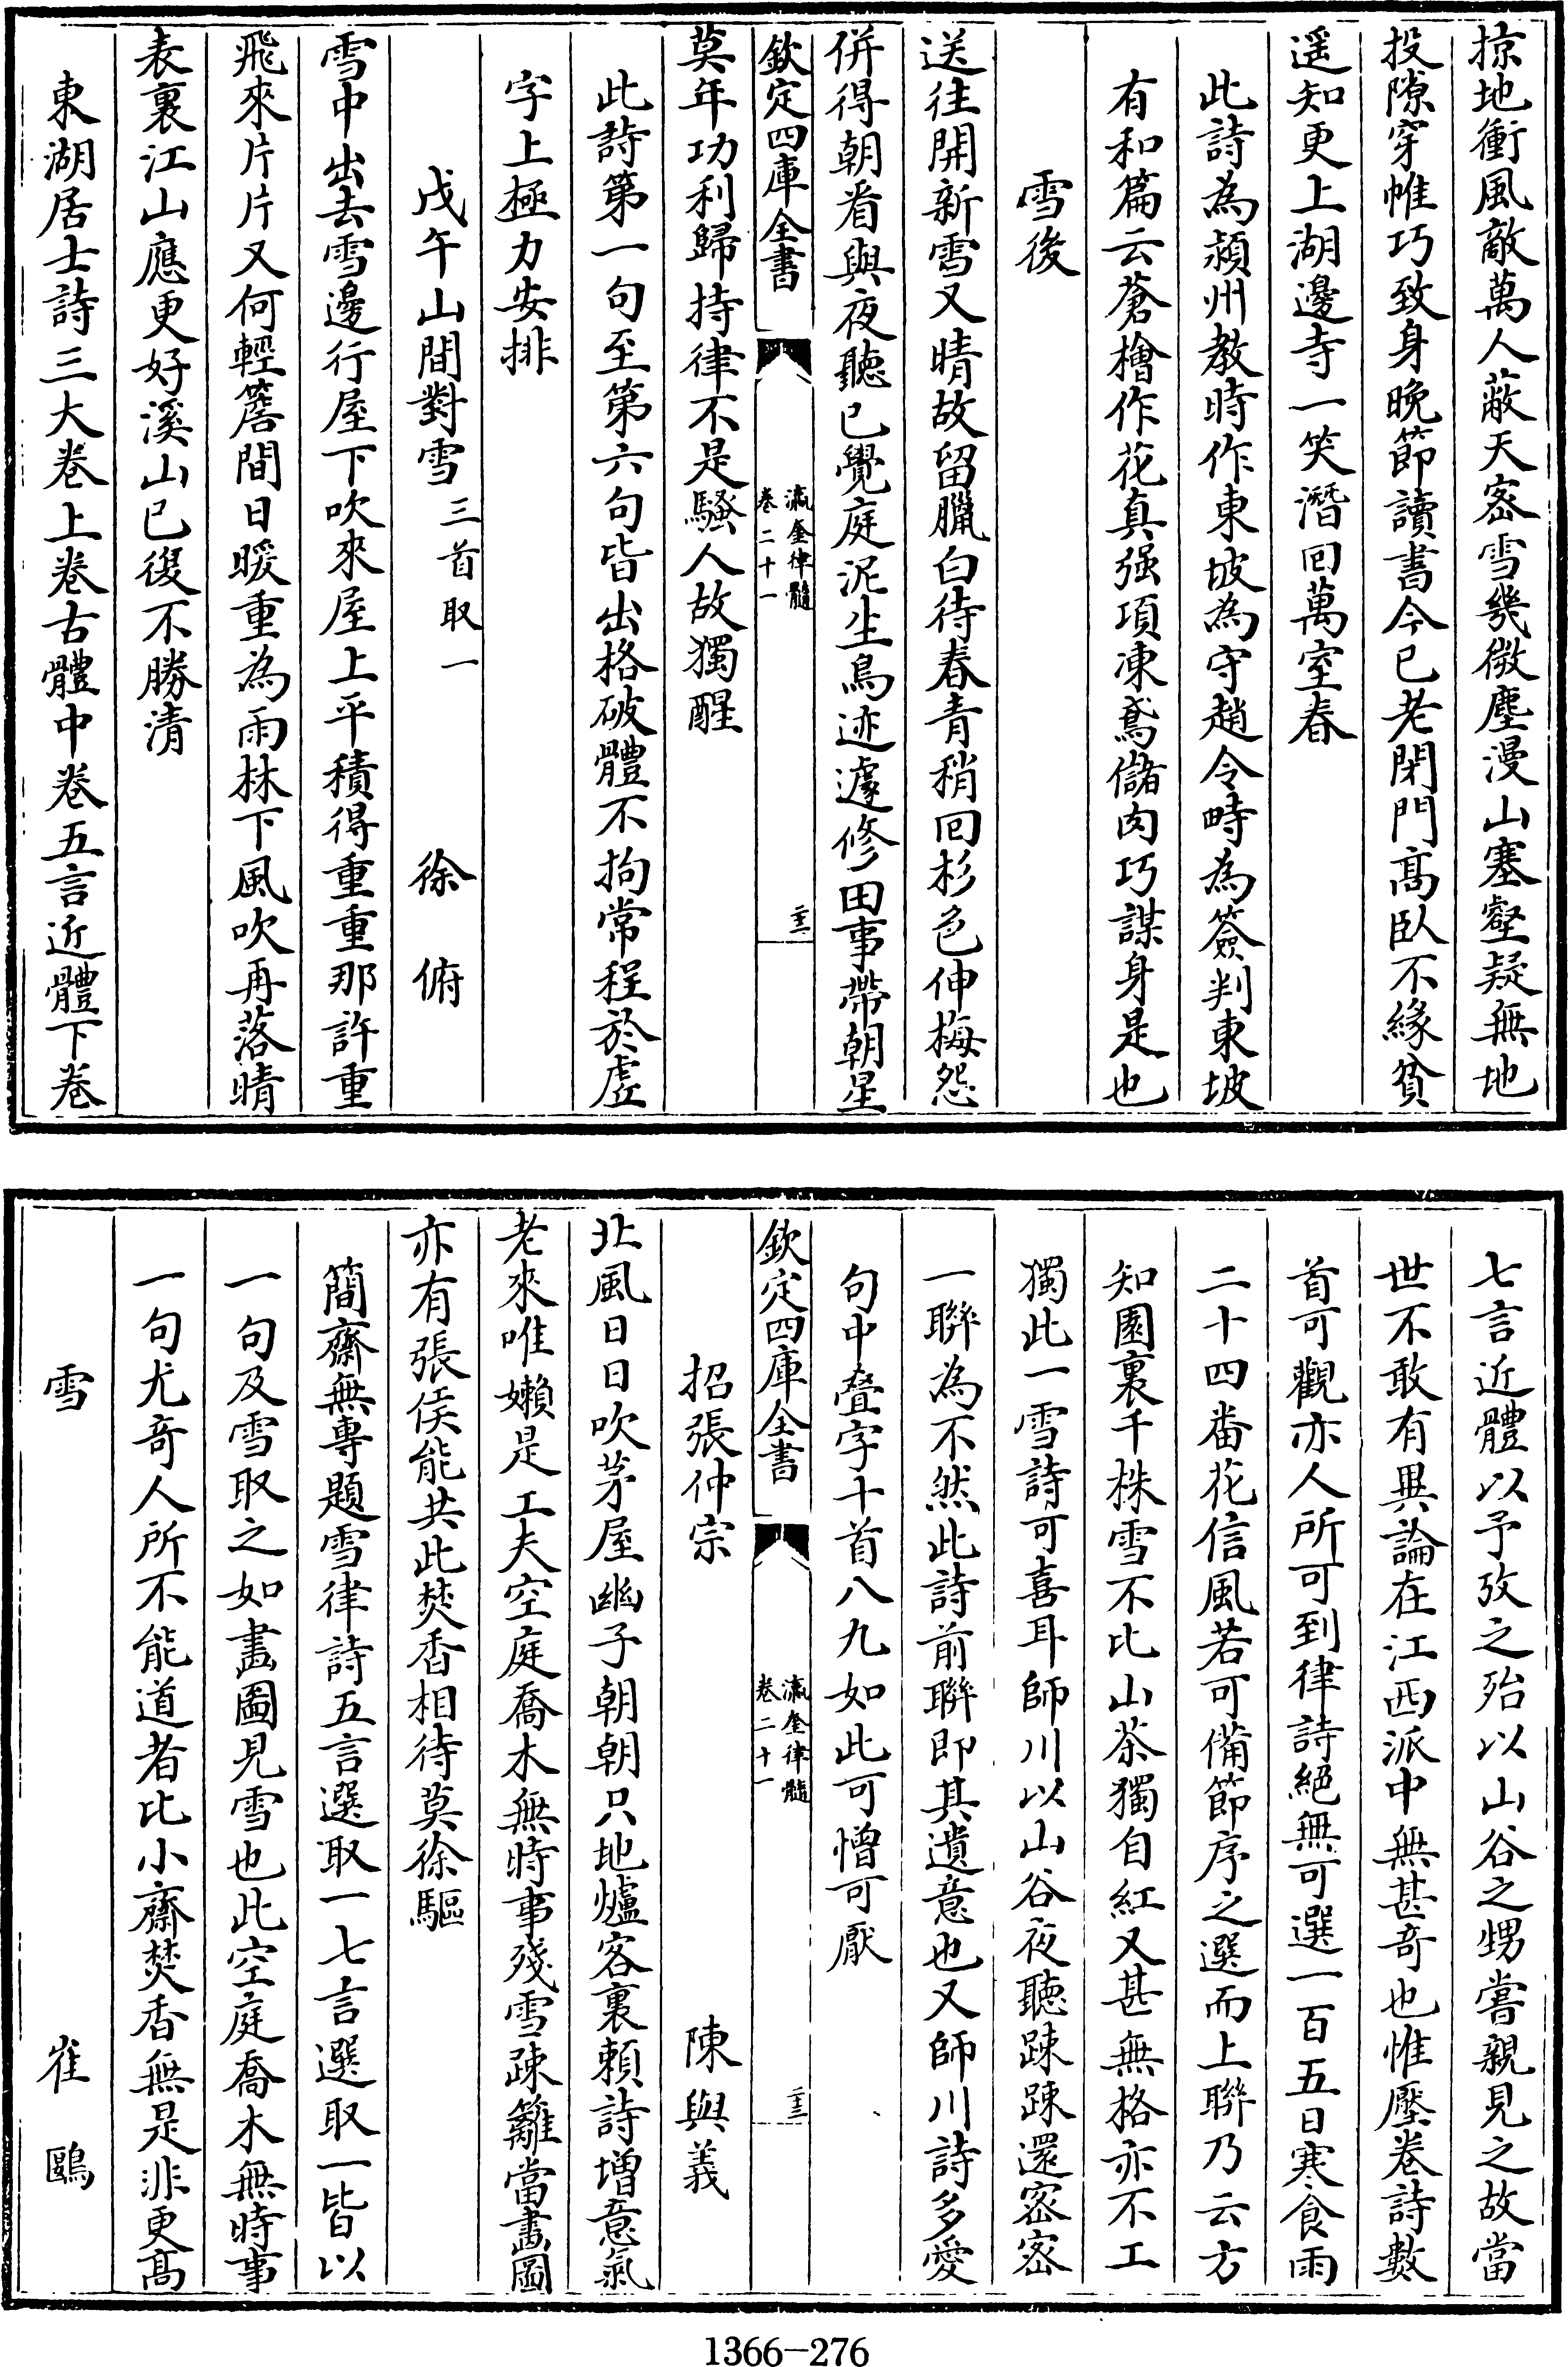 掠地衝風敵萬人蔽天密雪幾微塵漫山塞壑疑無地
投隙穿帷巧致身晚節讀書今已老閉門高臥不緣貧
遥知更上湖邊寺一笑潛回萬室春
此詩為潁州教時作東坡為守趙令畤為簽判東坡
有和篇云蒼檜作花真强項凍鳶儲肉巧謀身是也
雪後
送往開新雪又晴故留臘白待春青稍回杉色伸梅怨
併得朝看與夜聽已覺庭泥生鳥迹遽修田事帶朝星
欽定四庫全書
瀛奎律髓
卷二十一
莫年功利歸持律不是騷人故獨醒
此詩第一句至第六句皆出格破體不拘常程於虛
字上極力安排
戊午山間對雪 三首取一 徐俯
雪中出去雪邊行屋下吹來屋上平積得重重那許重
飛來片片又何輕簷間日暖重為雨林下風吹再落晴
表裏江山應更好溪山已復不勝清
東湖居士詩三大卷上卷古體中卷五言近體下卷
七言近體以予攷之殆以山谷之甥嘗親見之故當
世不敢有異論在江西派中無甚奇也惟壓卷詩數
首可觀亦人所可到律詩絕無可選一百五日寒食雨
二十四番花信風若可備節序之選而上聯乃云方
知園裏千株雪不比山茶獨自紅又甚無格亦不工
獨此一雪詩可喜耳師川以山谷夜聽踈踈還密密
一聯為不然此詩前聯即其遺意也又師川詩多愛
句中叠字十首八九如此可憎可厭
欽定四庫全書
瀛奎律髓
卷二十一
招張仲宗 陳與義
北風日日吹茅屋幽子朝朝只地爐客裏賴詩增意氣
老來唯嬾是工夫空庭喬木無時事殘雪踈籬當畵圖
亦有張侯能共此焚香相待莫徐驅
簡齋無專題雪律詩五言選取一七言選取一皆以
一句及雪取之如畵圖見雪也此空庭喬木無時事
一句尤奇人所不能道者比小齋焚香無是非更高
雪 崔鷗
1366-276